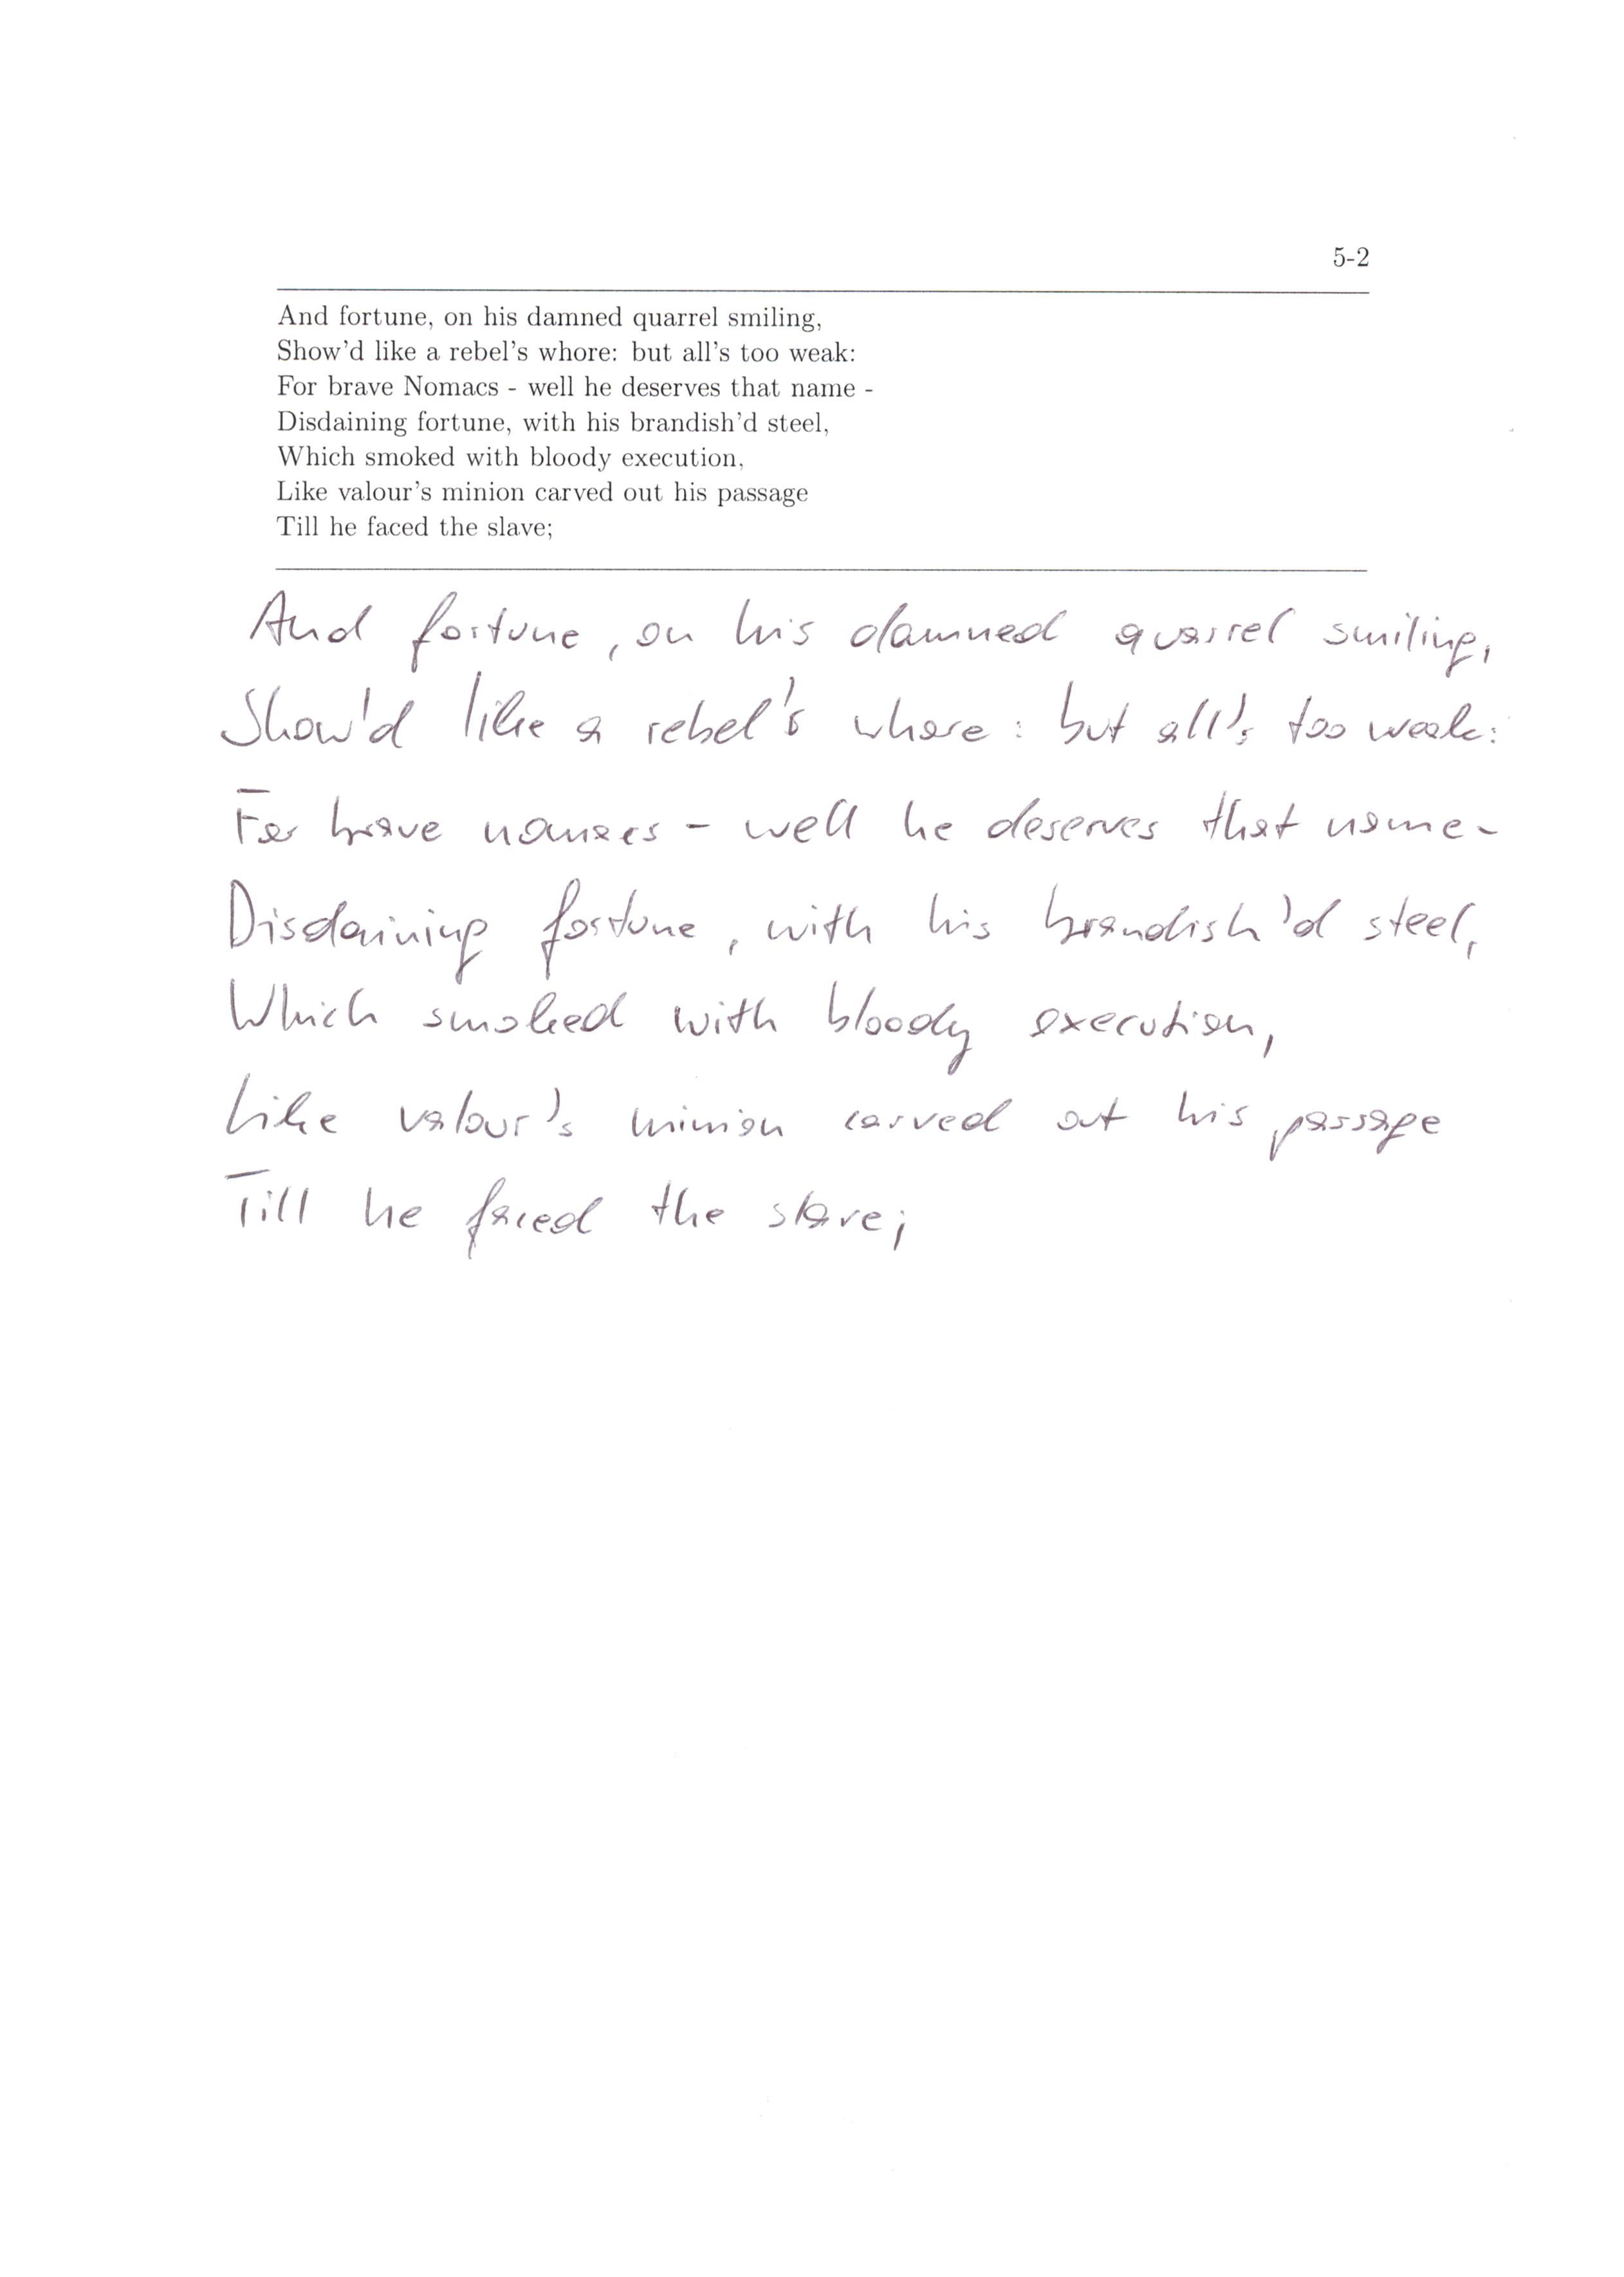 5-2
And fortune, on his damned quarrel smiling,
Show'd like a rebel's whore: but all's too weak:
For brave Nomacs - well he deserves that name -
Disdaining fortune, with his brandish'd steel,
Which smoked with bloody execution,
Like valour's minion carved out his passage
Till he faced the slave;
And fortune, on his damned quarrel smiling,
Show'd like a rebel's whore: but all's too weak:
For brave nomacs - well he deserves that name -
Disdaining fortune, with his brandish'd steel,
Which smoked with bloody execution,
Like valour's minion carved out his passage
Till he faced the slave;